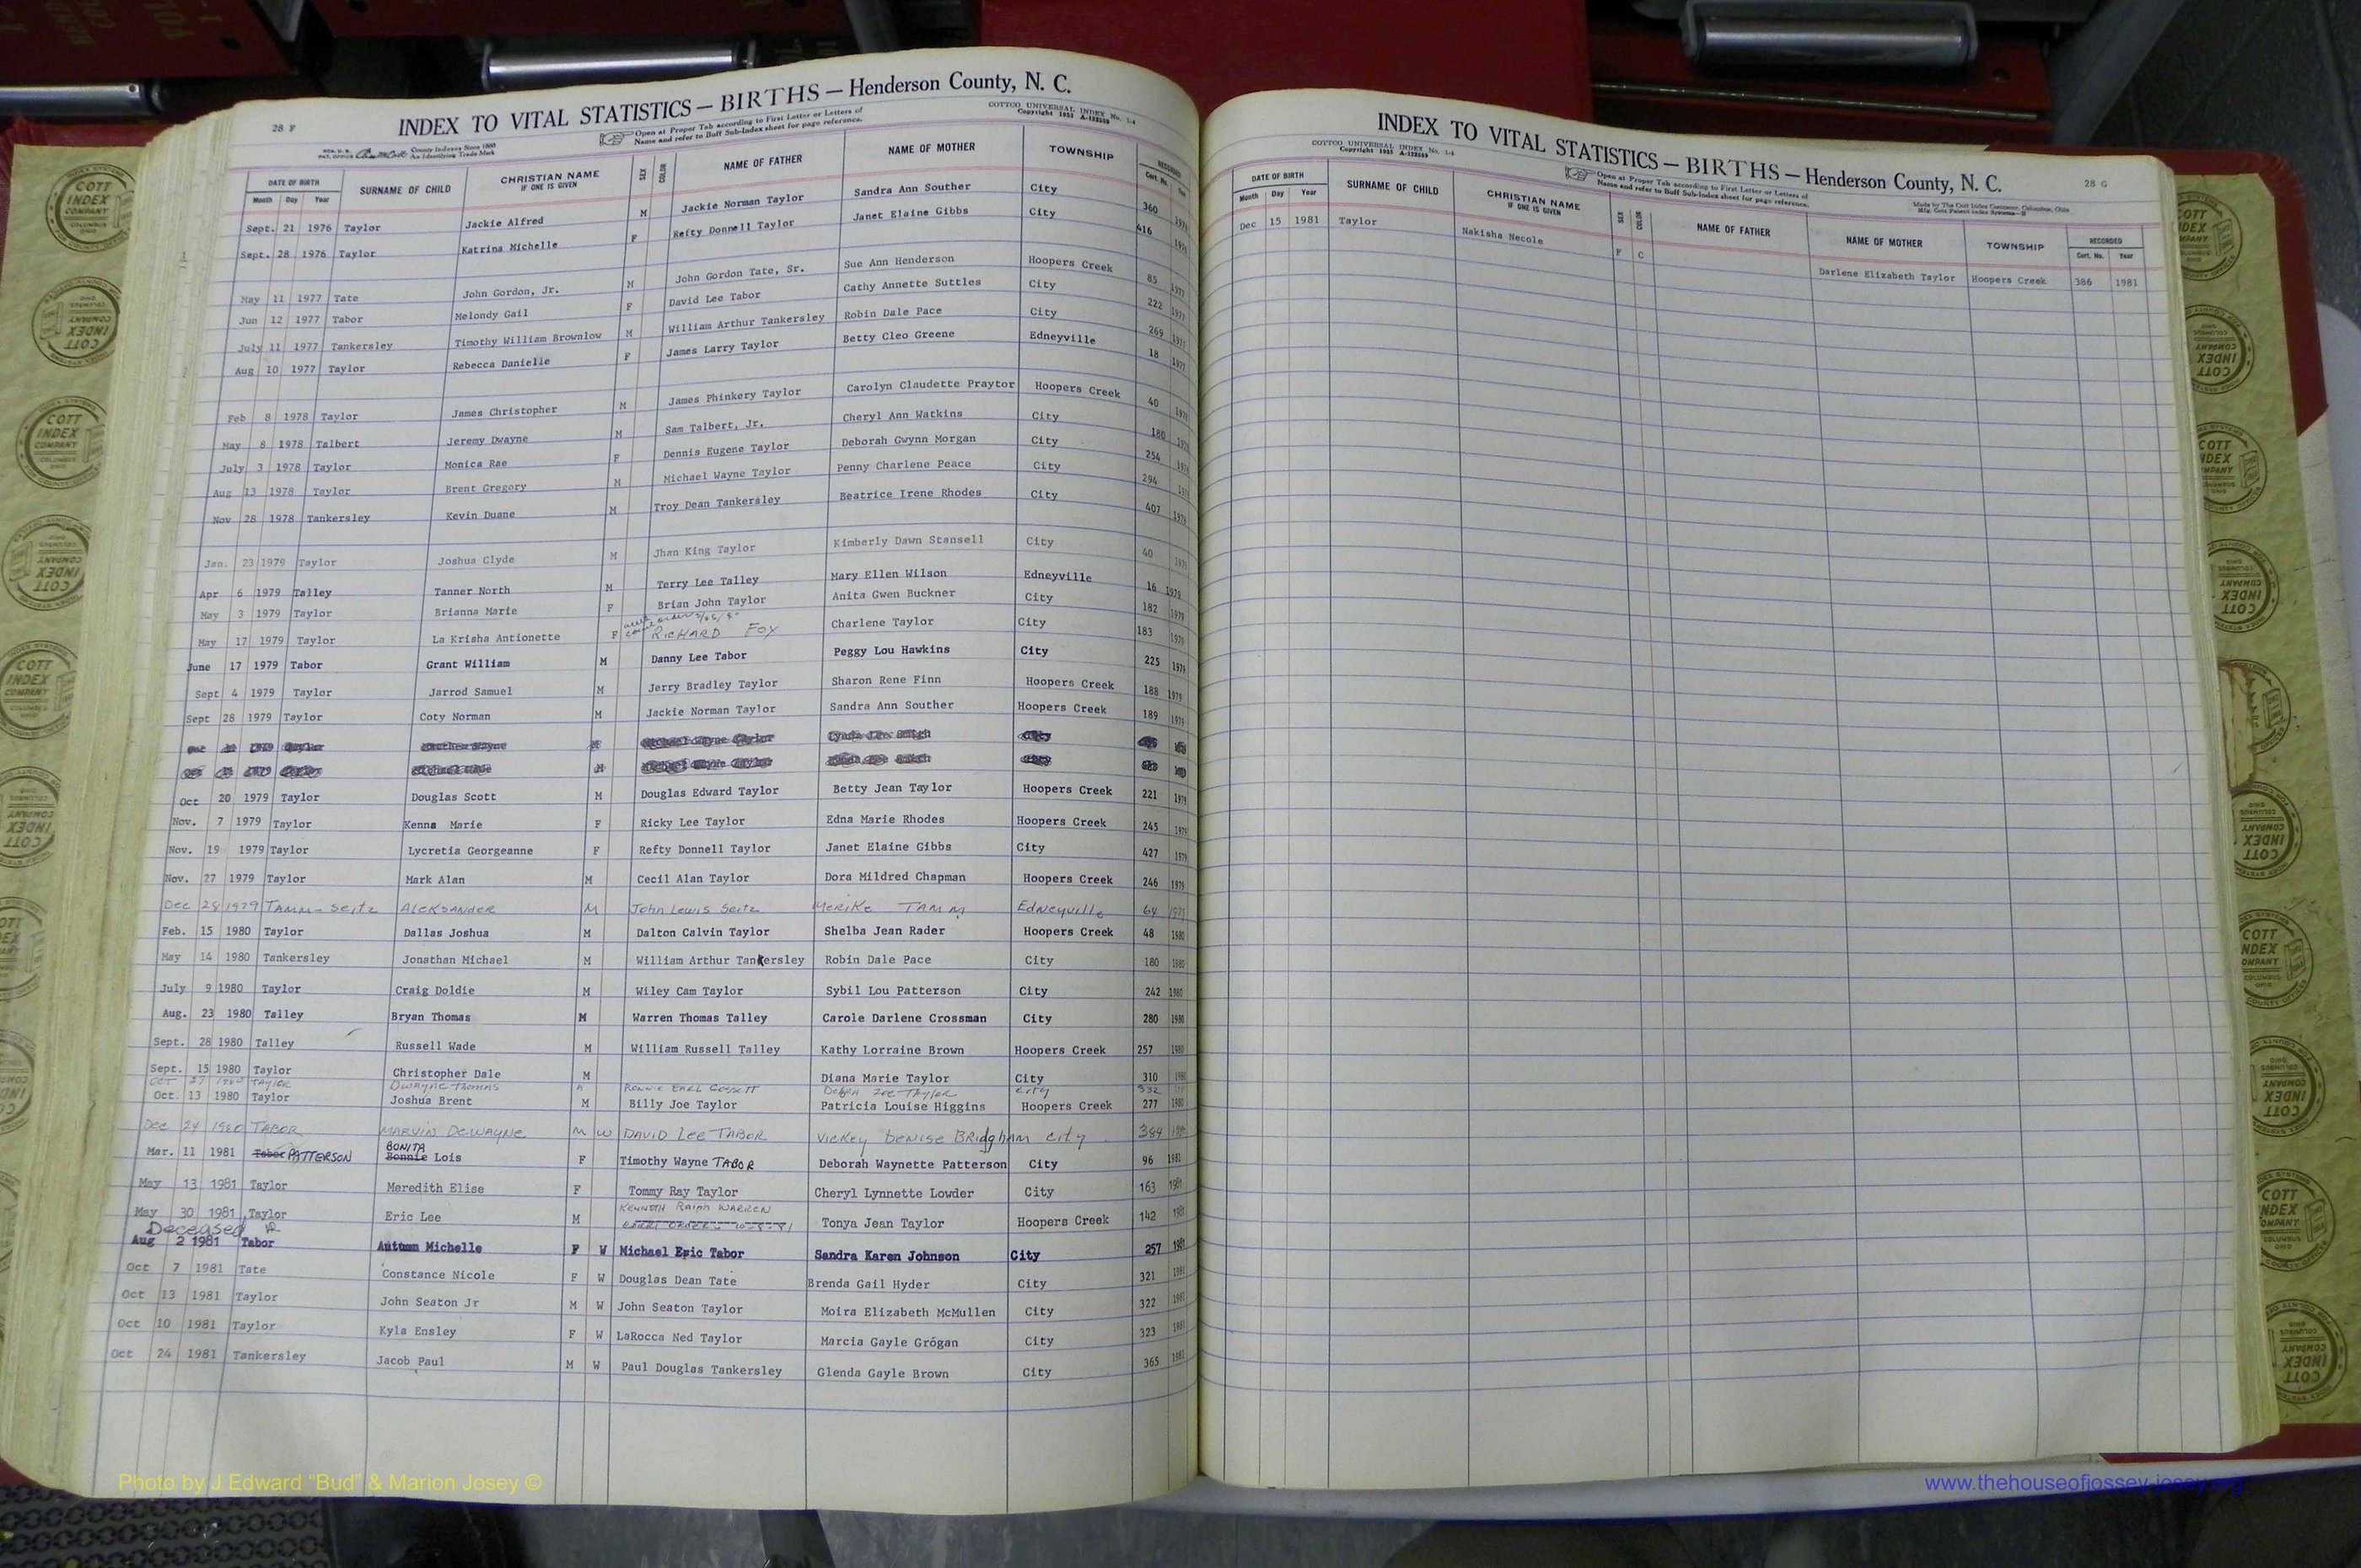 28 F
INDEX TO VITAL STATISTICS — BIRTHS — Henderson County, N. C.
COTTCO UNIVERSAL INDEX No. 1-4
Copyright 1935 A-132509
Open at Proper Tab according to First Letter or Letters of
Name and refer to Buff Sub-Index sheet for page reference.
REG. U. S. PAT. OFFICE County Indexes Since 1888
An Identifying Trade Mark
DATE OF BIRTH SURNAME OF CHILD CHRISTIAN NAME IF ONE IS GIVEN SEX COLOR NAME OF FATHER NAME OF MOTHER TOWNSHIP RECORDED
Month Day Year Cert. No. Year
Sept. 21 1976 Taylor Jackie Alfred M Jackie Norman Taylor Sandra Ann Souther City 360 1976
Sept. 28 1976 Taylor Katrina Michelle F Refty Donnell Taylor Janet Elaine Gibbs City 416 1976
May 11 1977 Tate John Gordon, Jr. M John Gordon Tate, Sr. Sue Ann Henderson Hoopers Creek 85 1977
Jun 12 1977 Tabor Melondy Gail F David Lee Tabor Cathy Annette Suttles City 222 1977
July 11 1977 Tankersley Timothy William Brownlow M William Arthur Tankersley Robin Dale Pace City 269 1977
Aug 10 1977 Taylor Rebecca Danielle F James Larry Taylor Betty Cleo Greene Edneyville 18 1977
Feb 8 1978 Taylor James Christopher M James Phinkery Taylor Carolyn Claudette Praytor Hoopers Creek 40 1978
May 8 1978 Talbert Jeremy Dwayne M Sam Talbert, Jr. Cheryl Ann Watkins City 180 1978
July 3 1978 Taylor Monica Rae F Dennis Eugene Taylor Deborah Gwynn Morgan City 254 1978
Aug 13 1978 Taylor Brent Gregory M Michael Wayne Taylor Penny Charlene Peace City 294 1978
Nov 28 1978 Tankersley Kevin Duane M Troy Dean Tankersley Beatrice Irene Rhodes City 407 1978
Jan. 23 1979 Taylor Joshua Clyde M Jhan King Taylor Kimberly Dawn Stansell City 40 1979
Apr 6 1979 Talley Tanner North M Terry Lee Talley Mary Ellen Wilson Edneyville 16 1979
May 3 1979 Taylor Brianna Marie F Brian John Taylor Anita Gwen Buckner City 182 1979
May 17 1979 Taylor La Krisha Antionette F court order RICHARD FOX Charlene Taylor City 183 1979
June 17 1979 Tabor Grant William M Danny Lee Tabor Peggy Lou Hawkins City 225 1979
Sept 4 1979 Taylor Jarrod Samuel M Jerry Bradley Taylor Sharon Rene Finn Hoopers Creek 188 1979
Sept 28 1979 Taylor Coty Norman M Jackie Norman Taylor Sandra Ann Souther Hoopers Creek 189 1979
Oct 20 1979 Taylor Douglas Scott M Douglas Edward Taylor Betty Jean Taylor Hoopers Creek 221 1979
Nov. 7 1979 Taylor Kenna Marie F Ricky Lee Taylor Edna Marie Rhodes Hoopers Creek 245 1979
Nov. 19 1979 Taylor Lycretia Georgeanne F Refty Donnell Taylor Janet Elaine Gibbs City 427 1979
Nov. 27 1979 Taylor Mark Alan M Cecil Alan Taylor Dora Mildred Chapman Hoopers Creek 246 1979
Dec 28 1979 TAMM-Seitz ALEKSANDER M John Lewis Seitz Merike TAMM Edneyville 64 1979
Feb. 15 1980 Taylor Dallas Joshua M Dalton Calvin Taylor Shelba Jean Rader Hoopers Creek 48 1980
May 14 1980 Tankersley Jonathan Michael M William Arthur Tankersley Robin Dale Pace City 180 1980
July 9 1980 Taylor Craig Doldie M Wiley Cam Taylor Sybil Lou Patterson City 242 1980
Aug. 23 1980 Talley Bryan Thomas M Warren Thomas Talley Carole Darlene Crossman City 280 1980
Sept. 28 1980 Talley Russell Wade M William Russell Talley Kathy Lorraine Brown Hoopers Creek 257 1980
Sept. 15 1980 Taylor Christopher Dale M Diana Marie Taylor City 310 1980
OCT 27 1980 TAYLOR Dwayne Thomas M RONNIE EARL GOSSETT Debra Zoe Taylor City 332
Oct. 13 1980 Taylor Joshua Brent M Billy Joe Taylor Patricia Louise Higgins Hoopers Creek 277 1980
Dec 24 1980 TABOR MARVIN DEWAYNE M W DAVID Lee TABOR Vickey Denise Bridgham City 384 1980
Mar. 11 1981 Tabor PATTERSON BONITA Bonnie Lois F Timothy Wayne TABOR Deborah Waynette Patterson City 96 1981
May 13 1981 Taylor Meredith Elise F Tommy Ray Taylor Cheryl Lynnette Lowder City 163 1981
May 30 1981 Taylor Eric Lee M KENNETH Ralph WARREN Tonya Jean Taylor Hoopers Creek 142 1981
Deceased
Aug 2 1981 Tabor Autumn Michelle F W Michael Eric Tabor Sandra Karen Johnson City 257 1981
Oct 7 1981 Tate Constance Nicole F W Douglas Dean Tate Brenda Gail Hyder City 321 1981
Oct 13 1981 Taylor John Seaton Jr M W John Seaton Taylor Moira Elizabeth McMullen City 322 1981
Oct 10 1981 Taylor Kyla Ensley F W LaRocca Ned Taylor Marcia Gayle Grógan City 323 1981
Oct 24 1981 Tankersley Jacob Paul M W Paul Douglas Tankersley Glenda Gayle Brown City 365 1981
INDEX TO VITAL STATISTICS — BIRTHS — Henderson County, N. C.
28 G
COTTCO UNIVERSAL INDEX No. 1-4
Copyright 1935 A-132509
Open at Proper Tab according to First Letter or Letters of
Name and refer to Buff Sub-Index sheet for page reference.
Made by The Cott Index Company, Columbus, Ohio
Mfg. Cott Patent Index Systems—B
DATE OF BIRTH SURNAME OF CHILD CHRISTIAN NAME IF ONE IS GIVEN SEX COLOR NAME OF FATHER NAME OF MOTHER TOWNSHIP RECORDED
Month Day Year Cert. No. Year
Dec 15 1981 Taylor Nakisha Necole F C Darlene Elizabeth Taylor Hoopers Creek 386 1981
COTT INDEX COMPANY
COLUMBUS OHIO
Photo by J Edward “Bud” & Marion Josey ©
www.thehouseofjossey-josey.org